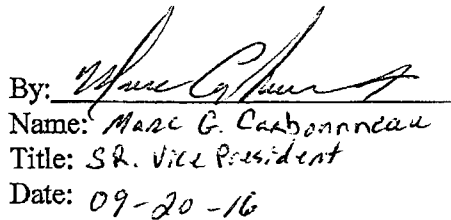 By:
Name: Marc G. Carbonnneau
Title: SR. Vice President
Date: 09-20-16